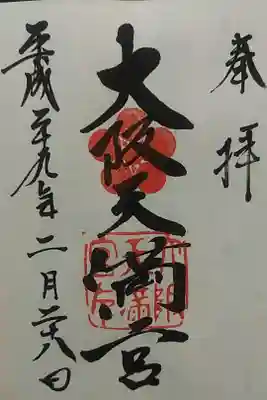 奉拝
大阪天満宮
平成二十九年二月二十八日